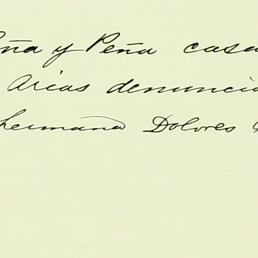 Peña y Peña casa
Arias denuncia
hermana Dolores